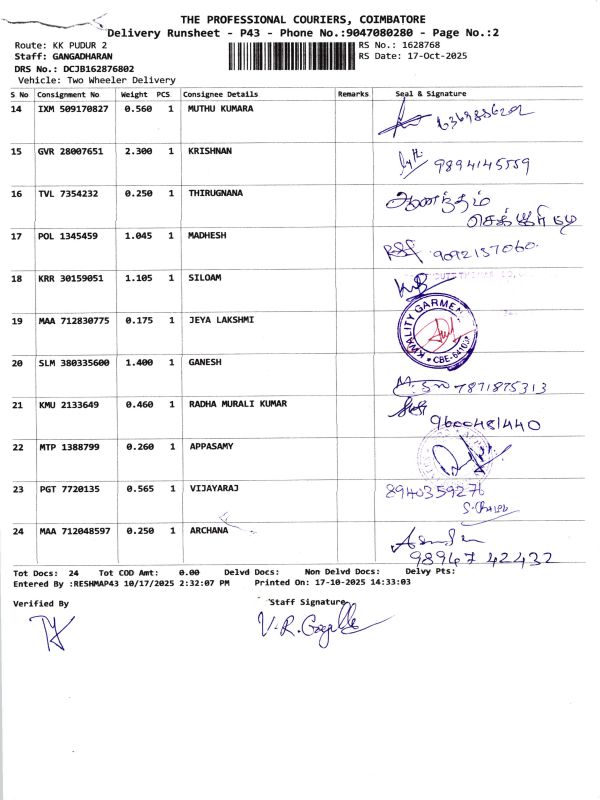 THE PROFESSIONAL COURIERS, COIMBATORE
Delivery Runsheet - P43 - Phone No.:9047080280 - Page No.:2
Route: KK PUDUR 2 RS No.: 1628768
Staff: GANGADHARAN RS Date: 17-Oct-2025
DRS No.: DCJB162876802
Vehicle: Two Wheeler Delivery
S No Consignment No Weight PCS Consignee Details Remarks Seal & Signature
14 IXM 509170827 0.560 1 MUTHU KUMARA
15 GVR 28007651 2.300 1 KRISHNAN 9894145559
16 TVL 7354232 0.250 1 THIRUGNANA ஆனந்தம்
17 POL 1345459 1.045 1 MADHESH 9092157060
18 KRR 30159051 1.105 1 SILOAM
19 MAA 712830775 0.175 1 JEYA LAKSHMI KWALITY GARMEN
20 SLM 380335600 1.400 1 GANESH 7871875313
21 KMU 2133649 0.460 1 RADHA MURALI KUMAR 9600481440
22 MTP 1388799 0.260 1 APPASAMY
23 PGT 7720135 0.565 1 VIJAYARAJ 8940359276
24 MAA 712048597 0.250 1 ARCHANA 98947 42432
Tot Docs: 24 Tot COD Amt: 0.00 Delvd Docs: Non Delvd Docs: Delvy Pts:
Entered By :RESHMAP43 10/17/2025 2:32:07 PM Printed On: 17-10-2025 14:33:03
Verified By Staff Signature